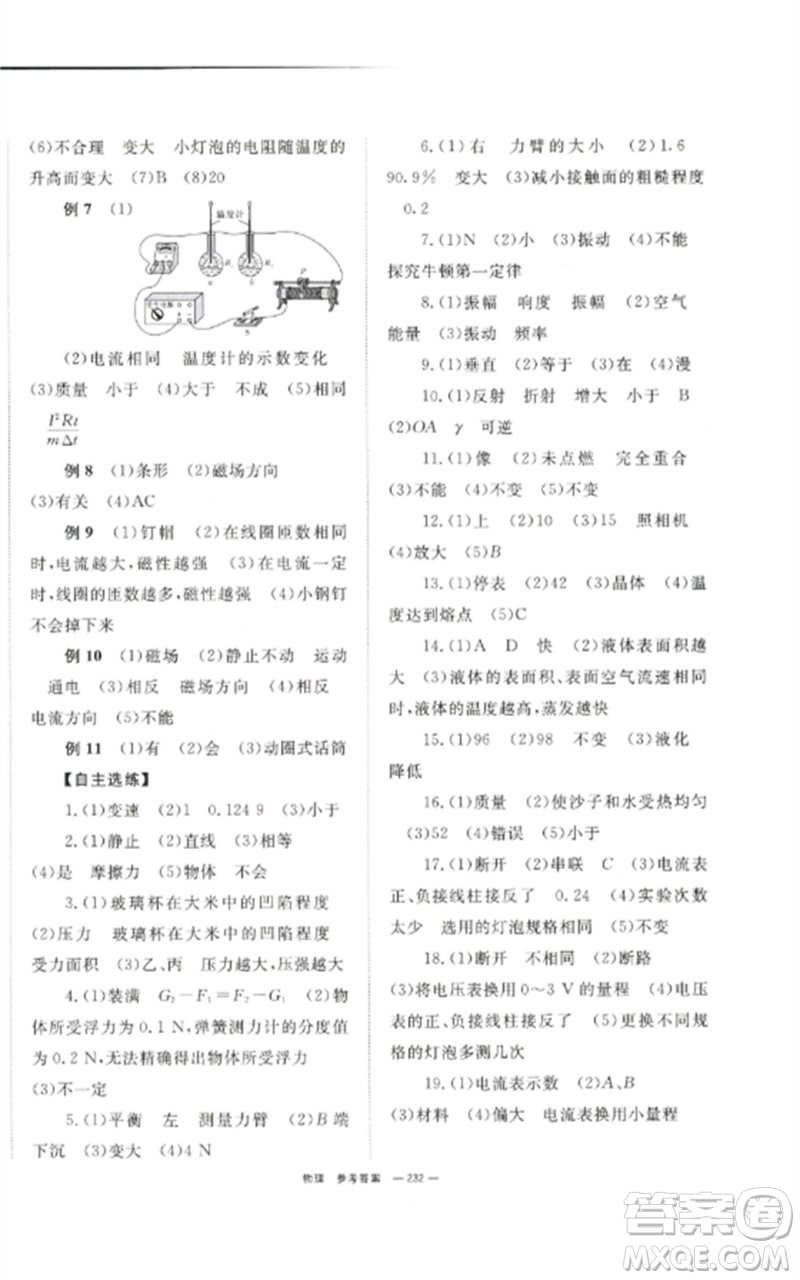 (6)不合理　变大　小灯泡的电阻随温度的
升高而变大　(7)B　(8)20
例 7　(1)
温度计
R₁
R₂
P
a
b
S
(2)电流相同　温度计的示数变化
(3)质量　小于　(4)大于　不成　(5)相同
I²Rt
mΔt
例 8　(1)条形　(2)磁场方向
(3)有关　(4)AC
例 9　(1)钉帽　(2)在线圈匝数相同
时,电流越大,磁性越强　(3)在电流一定
时,线圈的匝数越多,磁性越强　(4)小钢钉
不会掉下来
例 10　(1)磁场　(2)静止不动　运动
通电　(3)相反　磁场方向　(4)相反
电流方向　(5)不能
例 11　(1)有　(2)会　(3)动圈式话筒
【自主选练】
1.(1)变速　(2)1　0.124 9　(3)小于
2.(1)静止　(2)直线　(3)相等
(4)是　摩擦力　(5)物体　不会
3.(1)玻璃杯在大米中的凹陷程度
(2)压力　玻璃杯在大米中的凹陷程度
受力面积　(3)乙、丙　压力越大　越大
4.(1)装满　G₂－F₁＝F₂－G₁　(2)物
体所受浮力为 0.1 N,弹簧测力计的分度值
为 0.2 N,无法精确得出物体所受浮力
(3)不一定
5.(1)平衡　左　测量力臂　(2)B 端
下沉　(3)变大　(4)4 N
6.(1)右　力臂的大小　(2)1.6
90.9%　变大　(3)减小接触面的粗糙程度
0.2
7.(1)N　(2)小　(3)振动　(4)不能
探究牛顿第一定律
8.(1)振幅　响度　振幅　(2)空气
能量　(3)振动　频率
9.(1)垂直　(2)等于　(3)在　(4)漫
10.(1)反射　折射　增大　小于　B
(2)OA　γ　可逆
11.(1)像　(2)未点燃　完全重合
(3)不能　(4)不变　(5)不变
12.(1)上　(2)10　(3)15　照相机
(4)放大　(5)B
13.(1)停表　(2)42　(3)晶体　(4)温
度达到熔点　(5)C
14.(1)A　D　快　(2)液体表面积越
大　(3)液体的表面积、表面空气流速相同
时,液体的温度越高,蒸发越快
15.(1)96　(2)98　不变　(3)液化
降低
16.(1)质量　(2)使沙子和水受热均匀
(3)52　(4)错误　(5)小于
17.(1)断开　(2)串联　C　(3)电流表
正、负接线柱接反了　0.24　(4)实验次数
太少　选用的灯泡规格相同　(5)不变
18.(1)断开　不相同　(2)断路
(3)将电压表换用 0～3 V 的量程　(4)电压
表的正、负接线柱接反了　(5)更换不同规
格的灯泡多测几次
19.(1)电流表示数　(2)A、B
(3)材料　(4)偏大　电流表换用小量程
物理　参考答案　— 232 —
答案卷
MXQE.COM